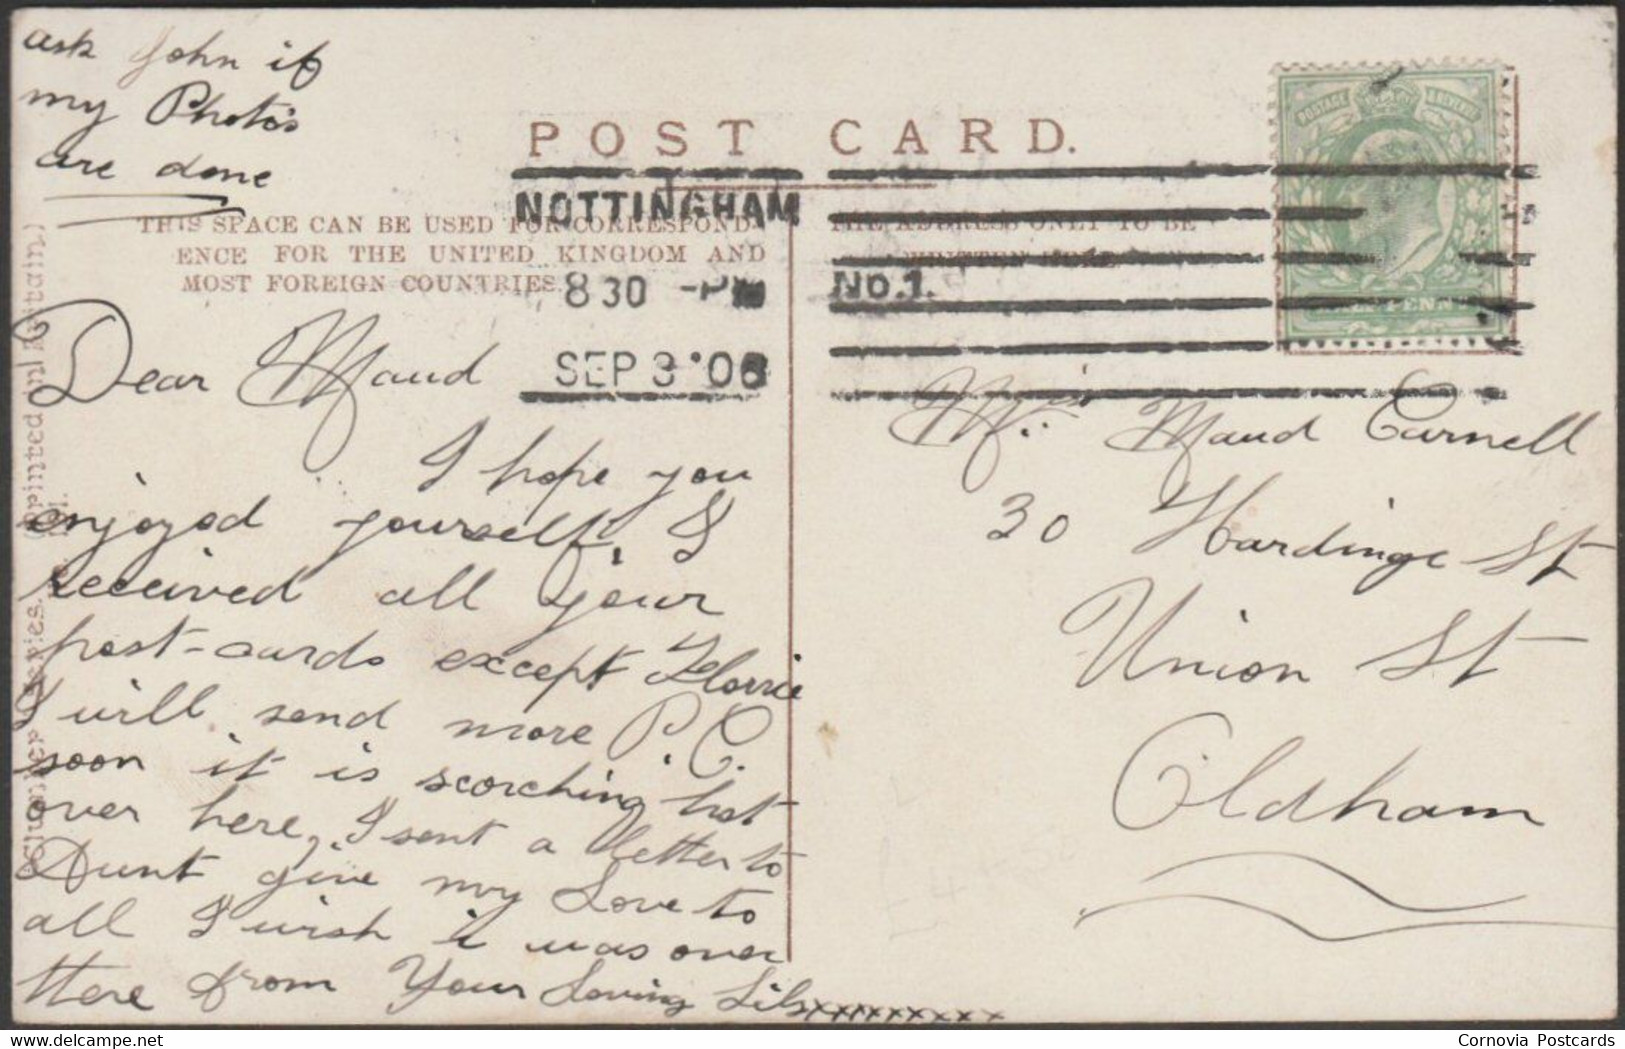 ask John if
my Photo's
are done
POST CARD.
THIS SPACE CAN BE USED FOR CORRESPOND-
ENCE FOR THE UNITED KINGDOM AND
MOST FOREIGN COUNTRIES.
THE ADDRESS ONLY TO BE
WRITTEN HERE
NOTTINGHAM
8 30 -PM
No.1.
SEP 3 '06
POSTAGE & REVENUE
PENNY
Dear Maud
I hope you
enjoyed yourself, I
received all your
post-cards except Florrie
I will send more P.C.
soon it is scorching hot
over here, I sent a letter to
Aunt give my Love to
all I wish i was over
there from Your Loving Lil xxxxxxxxxx
Miss Maud Curnell
30 Hardinge St
Union St
Oldham
Series. (Printed in Britain.)
Cornovia Postcards